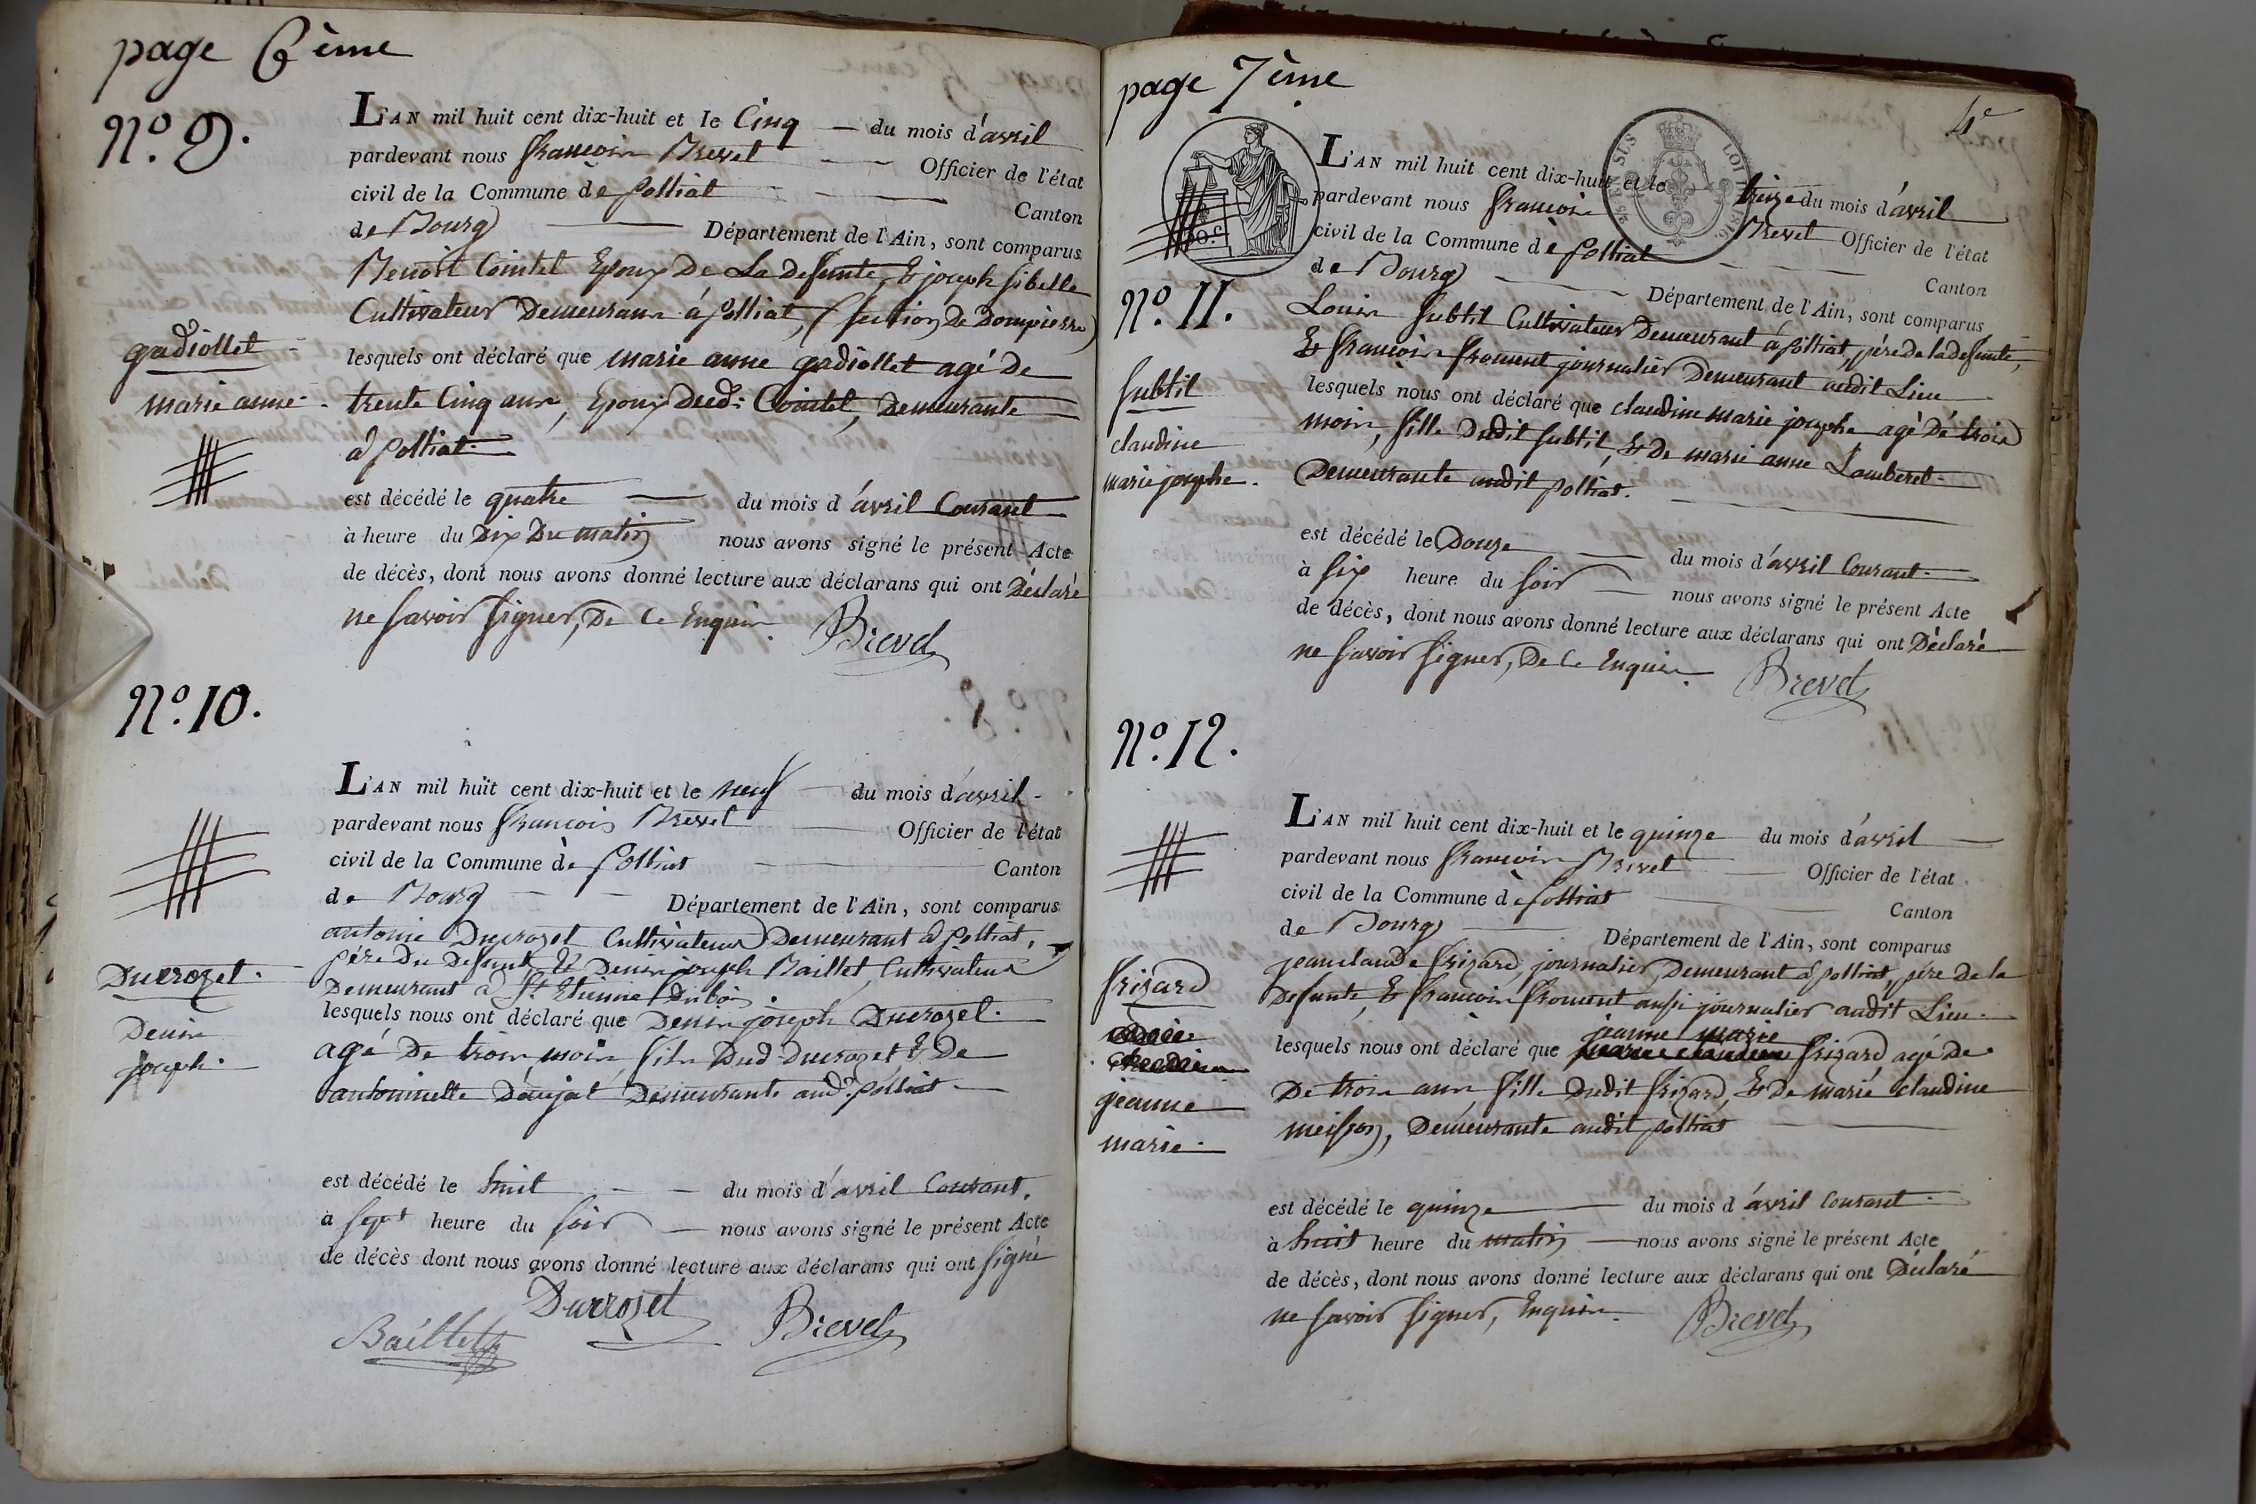 page 6ème
N° 9.
L'AN mil huit cent dix-huit et le Cinq du mois d'avril
pardevant nous françois Brevet Officier de l'état
civil de la Commune de polliat Canton
de Bourg Département de l'Ain, sont comparus
Benoit Cointet Epoux De La defunte, & joseph sibelle
Cultivateur Demeurans à polliat, (section De Dompierre)
gadiollet
marie anne
lesquels ont déclaré que marie anne gadiollet agé de
trente Cinq ans, Epoux dud: Cointet, Demeurante
à polliat.
est décédé le quatre du mois d'avril Courant
à heure du Dix Du matin nous avons signé le présent Acte
de décès, dont nous avons donné lecture aux déclarans qui ont Déclaré
ne savoir signer, De Ce Enquis. Brevet
N° 10.
L'AN mil huit cent dix-huit et le neuf du mois d'avril
pardevant nous françois Brevet Officier de l'état
civil de la Commune de Polliat Canton
de Bourg Département de l'Ain, sont comparus
antoine Ducrozet Cultivateur Demeurant à polliat,
père Du Defunt, & Denis joseph Baillet, Cultivateur
Demeurant à St. Etienne Dubois.
Ducrozet.
Denis
joseph.
lesquels nous ont déclaré que Denis joseph Ducrozet.
agé De trois mois, fils Dud. Ducrozet & De
antoinette Demeurante aud. polliat
est décédé le huit du mois d'avril Courant.
à sept heure du soir nous avons signé le présent Acte
de décès dont nous avons donné lecture aux déclarans qui ont signé
Ducrozet Brevet
Baillet
page 7ème
4e
L'AN mil huit cent dix-huit et le treize du mois d'avril
pardevant nous françois Brevet Officier de l'état
civil de la Commune de polliat Canton
de Bourg Département de l'Ain, sont comparus
N° 11.
Louis subtil Cultivateur Demeurant à polliat, père De la defunte,
& françois froment journalier Demeurant audit Lieu
subtil
claudine
marie josephe.
lesquels nous ont déclaré que claudine marie josephe agé Dé trois
mois, fille Dudit subtil, & De marie anne Lamberet.
Demeurante audit polliat.
est décédé le Douze du mois d'avril Courant.
à six heure du soir nous avons signé le présent Acte
de décès, dont nous avons donné lecture aux déclarans qui ont Déclaré
ne savoir signer, De Ce Enquis. Brevet
N° 12.
L'AN mil huit cent dix-huit et le quinze du mois d'avril
pardevant nous françois Brevet Officier de l'état
civil de la Commune de polliat Canton
de Bourg Département de l'Ain, sont comparus
jean claude frizard, journalier, Demeurant à polliat, père De la
Defunte, & françois froment aussi journalier audit Lieu.
frizard
jeanne
marie.
jeanne marie
lesquels nous ont déclaré que frizard, agé De
De trois ans, fille Dudit frizard, & De marie claudine
meisson, Demeurante audit polliat
est décédé le quinze du mois d'avril Courant
à huit heure du matin nous avons signé le présent Acte
de décès, dont nous avons donné lecture aux déclarans qui ont Déclaré
ne savoir signer, Enquis. Brevet